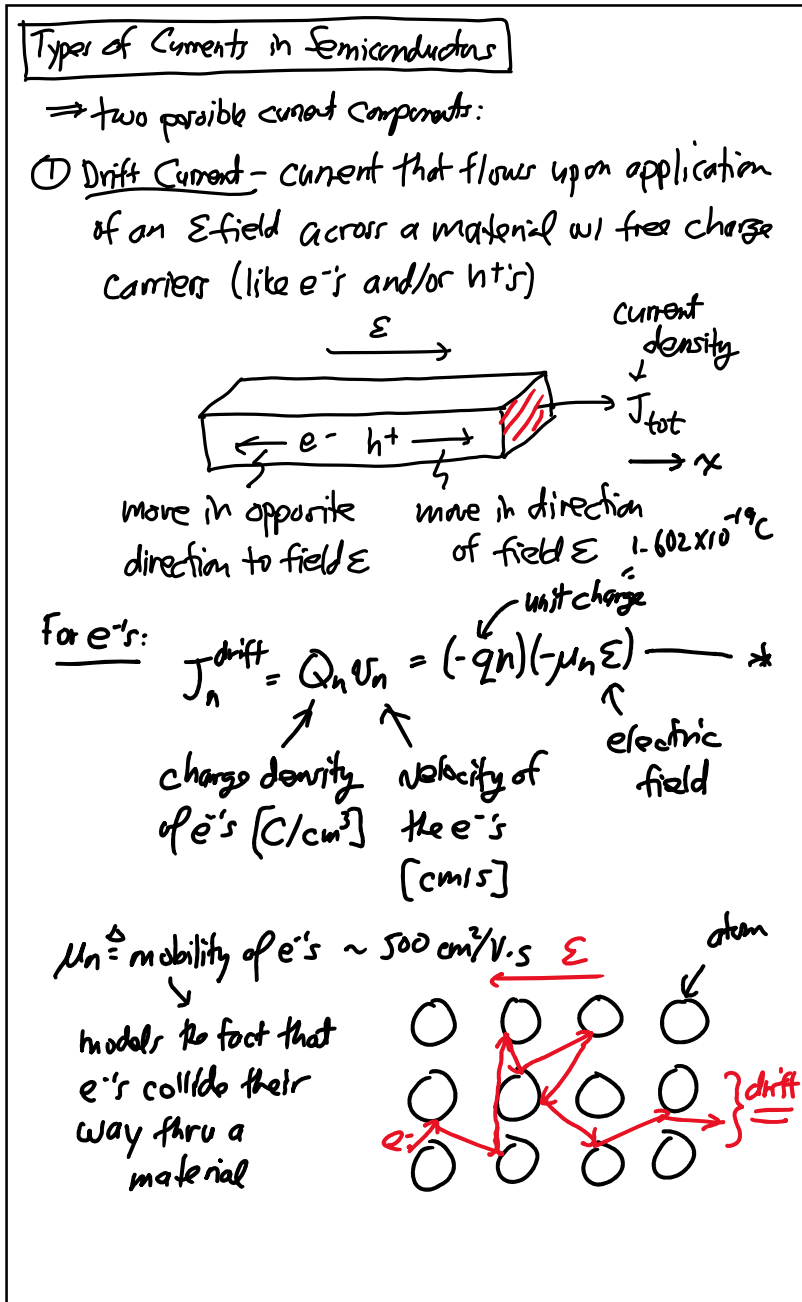 Types of Currents in Semiconductors
⇒ two possible current components:
① Drift Current - current that flows upon application
of an ε field across a material w/ free charge
carriers (like e⁻'s and/or h⁺'s)
ε
current
density
J_tot
e⁻ h⁺
x
move in opposite
direction to field ε
move in direction
of field ε
1.602×10⁻¹⁹C
=
unit charge
For e⁻'s:
J_n^drift = Q_n v_n = (-qn)(-μ_n ε) — *
charge density
of e⁻'s [C/cm³]
velocity of
the e⁻'s
[cm/s]
electric
field
μ_n ≜ mobility of e⁻'s ~ 500 cm²/V·s
models the fact that
e⁻'s collide their
way thru a
material
ε
atom
e⁻
drift